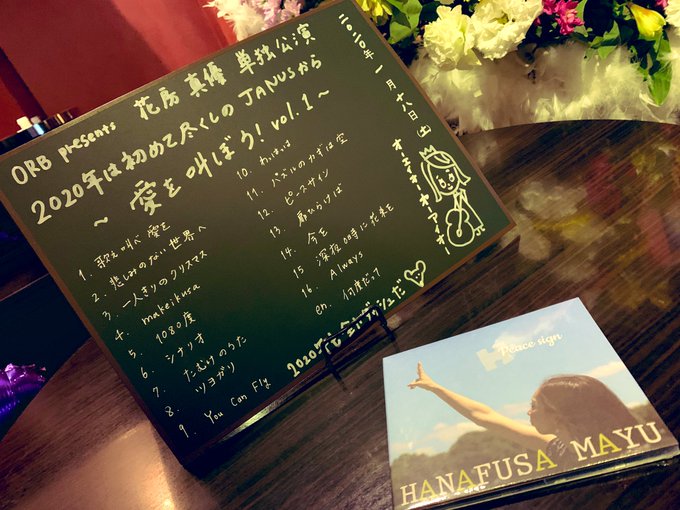 ORB presents 花房真優 単独公演
2020年は初めて尽くしの JANUSから
～ 愛を叫ぼう! vol.1 ～
二〇二〇年 一月十八日(土)
1. 歌え叫べ愛を
2. 悲しみのない世界へ
3. 一人きりのクリスマス
4. makeikusa
5. 1080度
6. シナリオ
7. たむけのうた
8. ツヨガリ
9. You Can Fly
10. わははは
11. パズルのカギは空
12. ピースサイン
13. 扉ひらけば
14. 今を
15. 深夜00時に花束を
16. Always
en. 何度だって
Peace sign
HANAFUSA MAYU